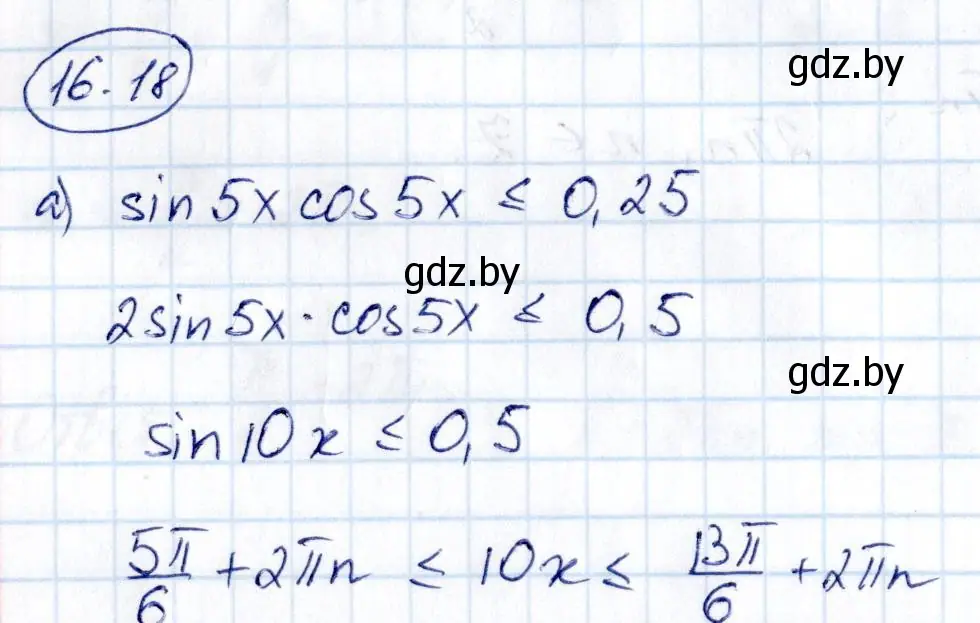 16.18
gdz.by
a) sin 5x cos 5x ≤ 0,25
gdz.by
2 sin 5x · cos 5x ≤ 0,5
gdz.by
sin 10x ≤ 0,5
5π/6 + 2πn ≤ 10x ≤ 13π/6 + 2πn